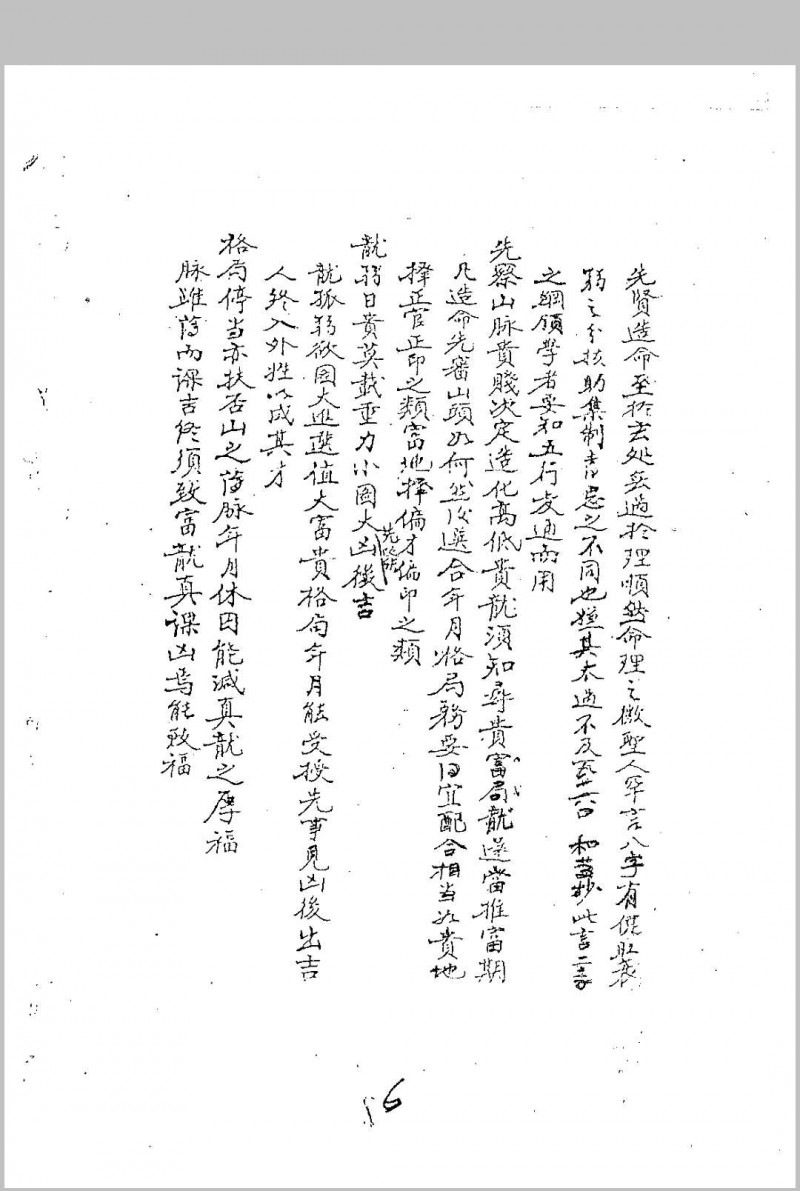 先賢造命至於玄処無過於理順然命理之微聖人罕言八字有傑旺衰
弱之分扶助集制吉忌之不同也極其太過不及 和 妙此言
之綱領學者要知五行变通而用
先察山脉貴賤次定造化高低貴龍須知尋貴富局龍遂當推富期
凡造命先審山頭如何然後選合年月格局務要日宜配合相当如貴地
擇正官正印之類富地擇偏才偏印之類
龍弱日貴莫載重力小圖大凶後吉
先
龍孤弱欲圖大進選值大富貴格局年月能受授先事見凶後出吉
人終入外姓以成其才
格局停当亦扶否山之薄脉年月休因能減真龍之厚福
脉雖薄而課吉終須致富龍真課凶焉能致福
56